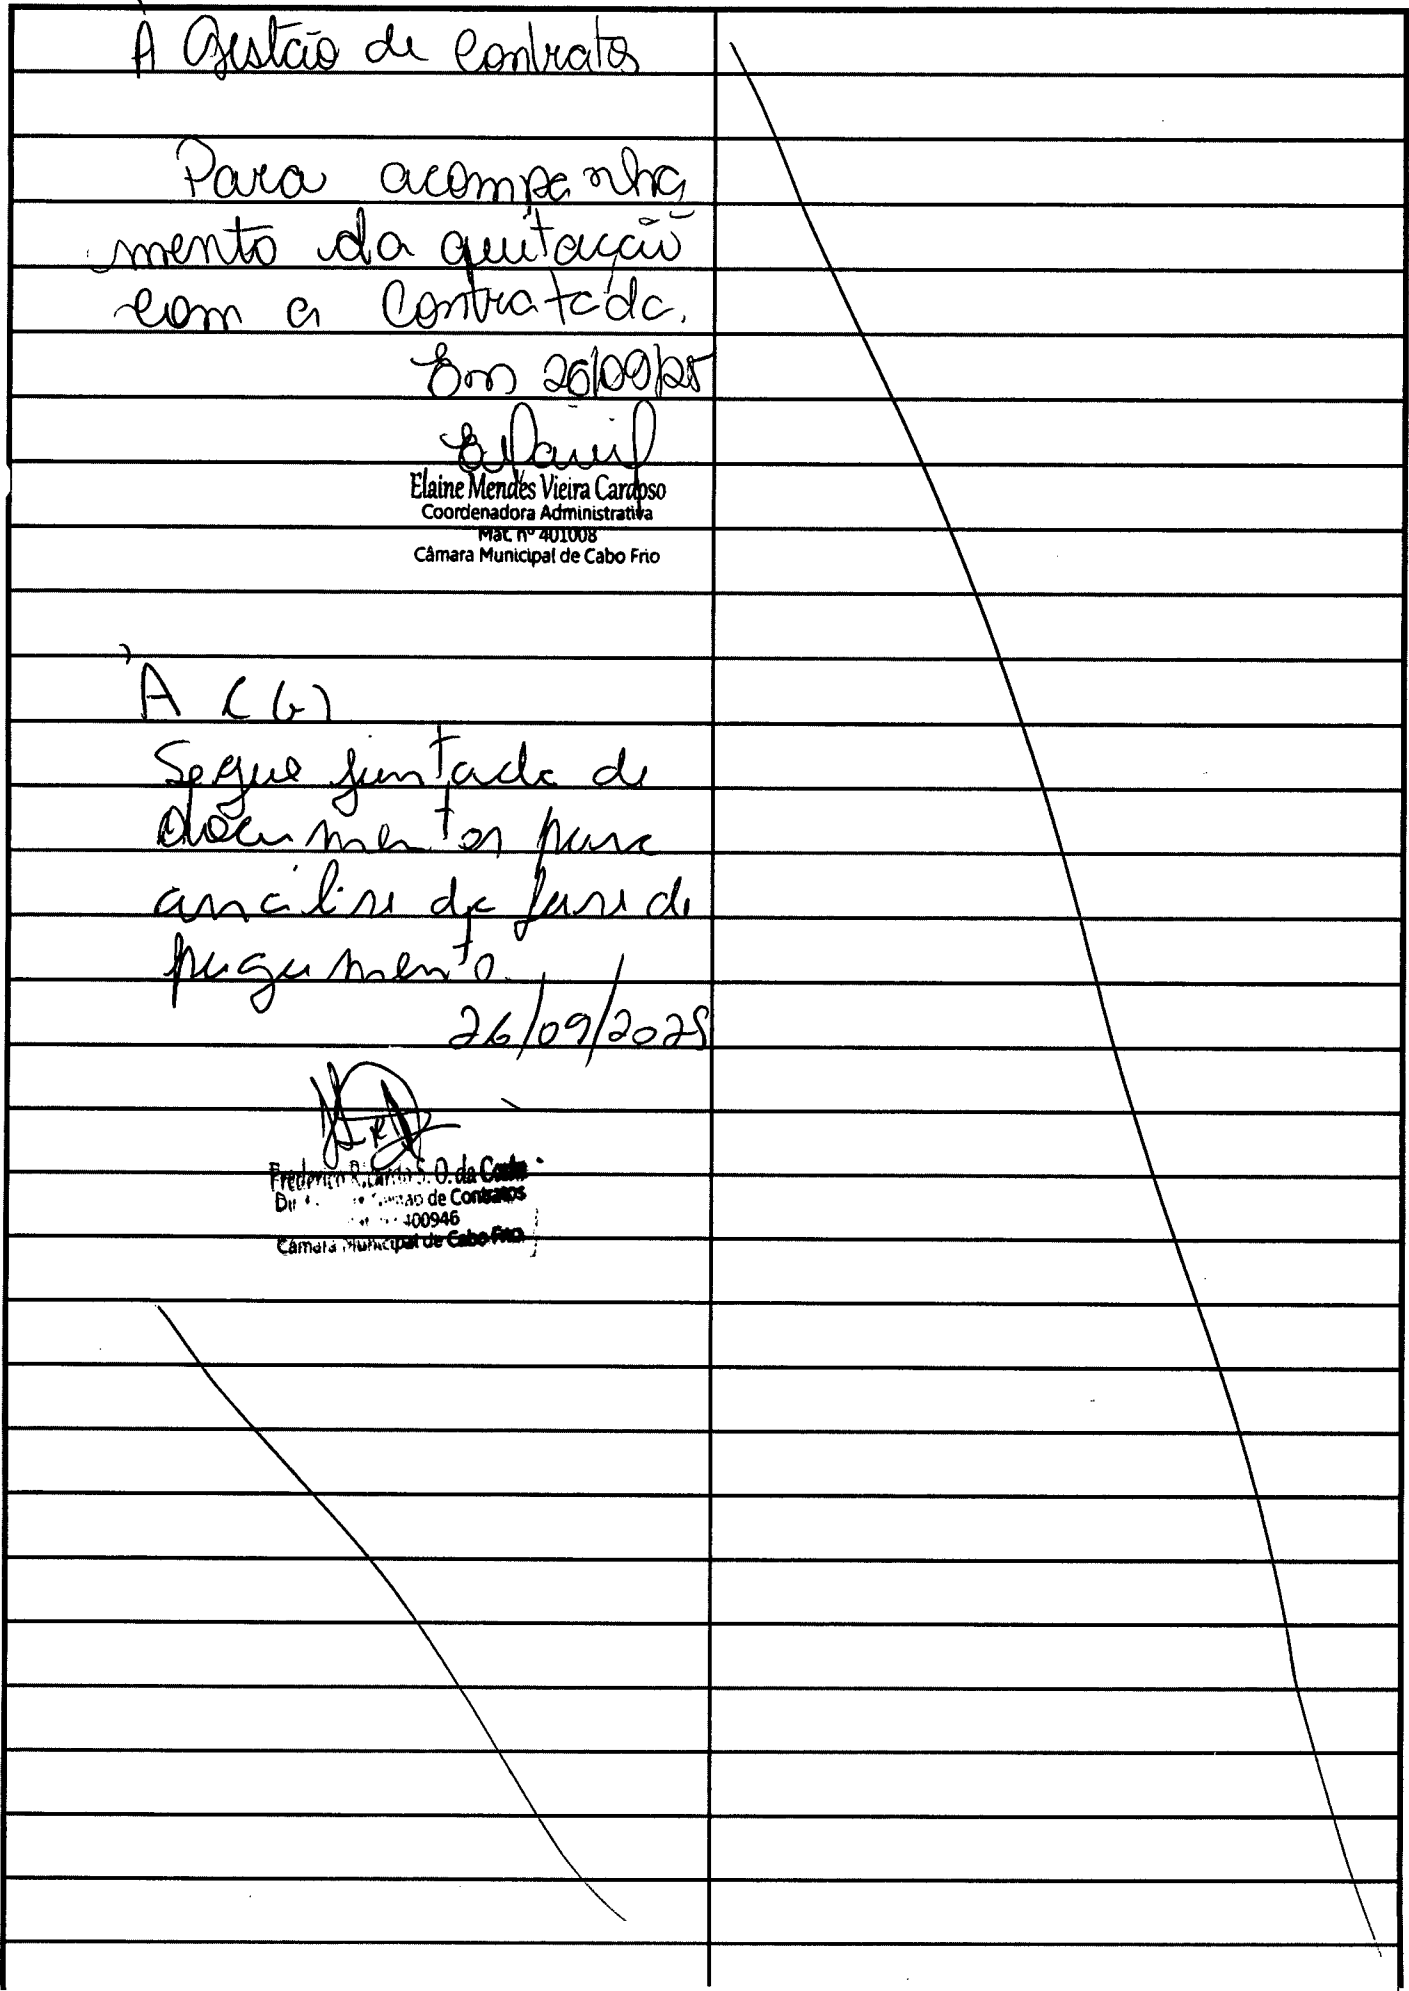 À Gestão de Contratos
Para acompanha
mento da quitação
com a Contratada.
Em 26/09/25
Elaine Mendes Vieira Cardoso
Coordenadora Administrativa
Mat. nº 401008
Câmara Municipal de Cabo Frio
À CGI
Segue juntada de
documentos para
análise da fase de
pagamento.
26/09/2025
Frederico Ricardo S. O. da Costa
de Contratos
400946
Câmara Municipal de Cabo Frio